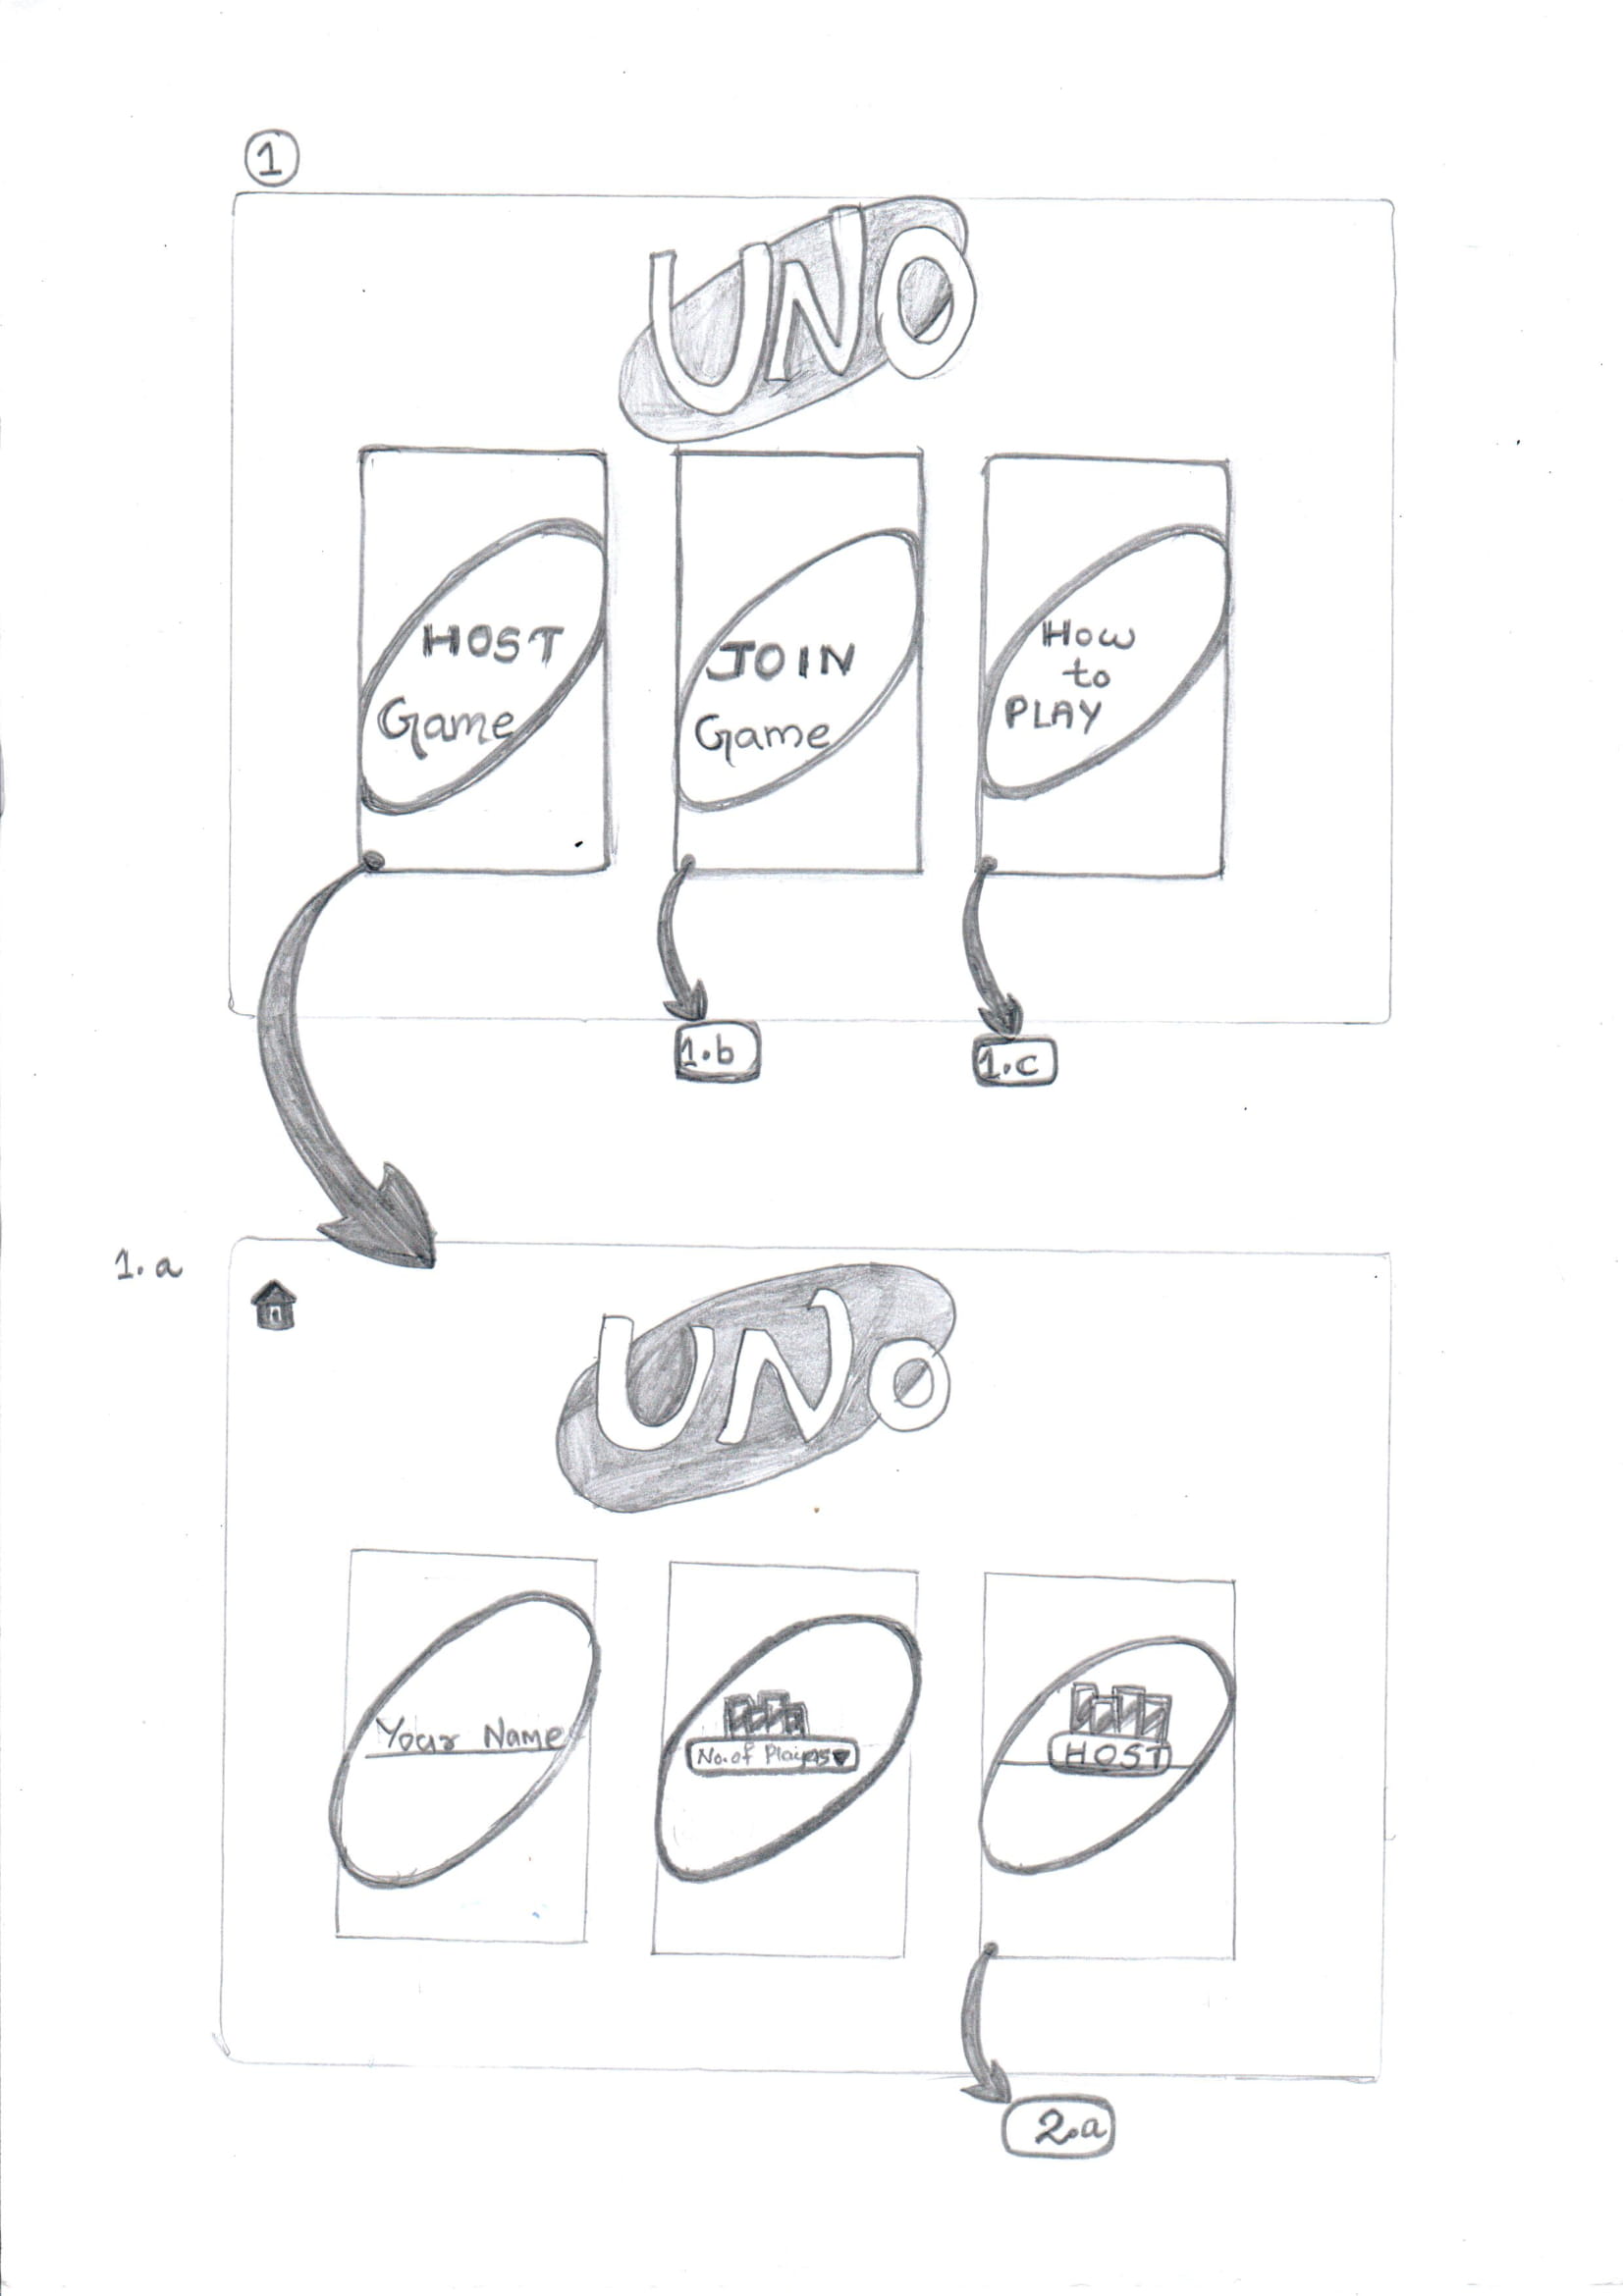 1
UNO
HOST
Game
JOIN
Game
How
to
PLAY
1.b
1.c
1.a
UNO
Your Name
No. of Players
HOST
2.a